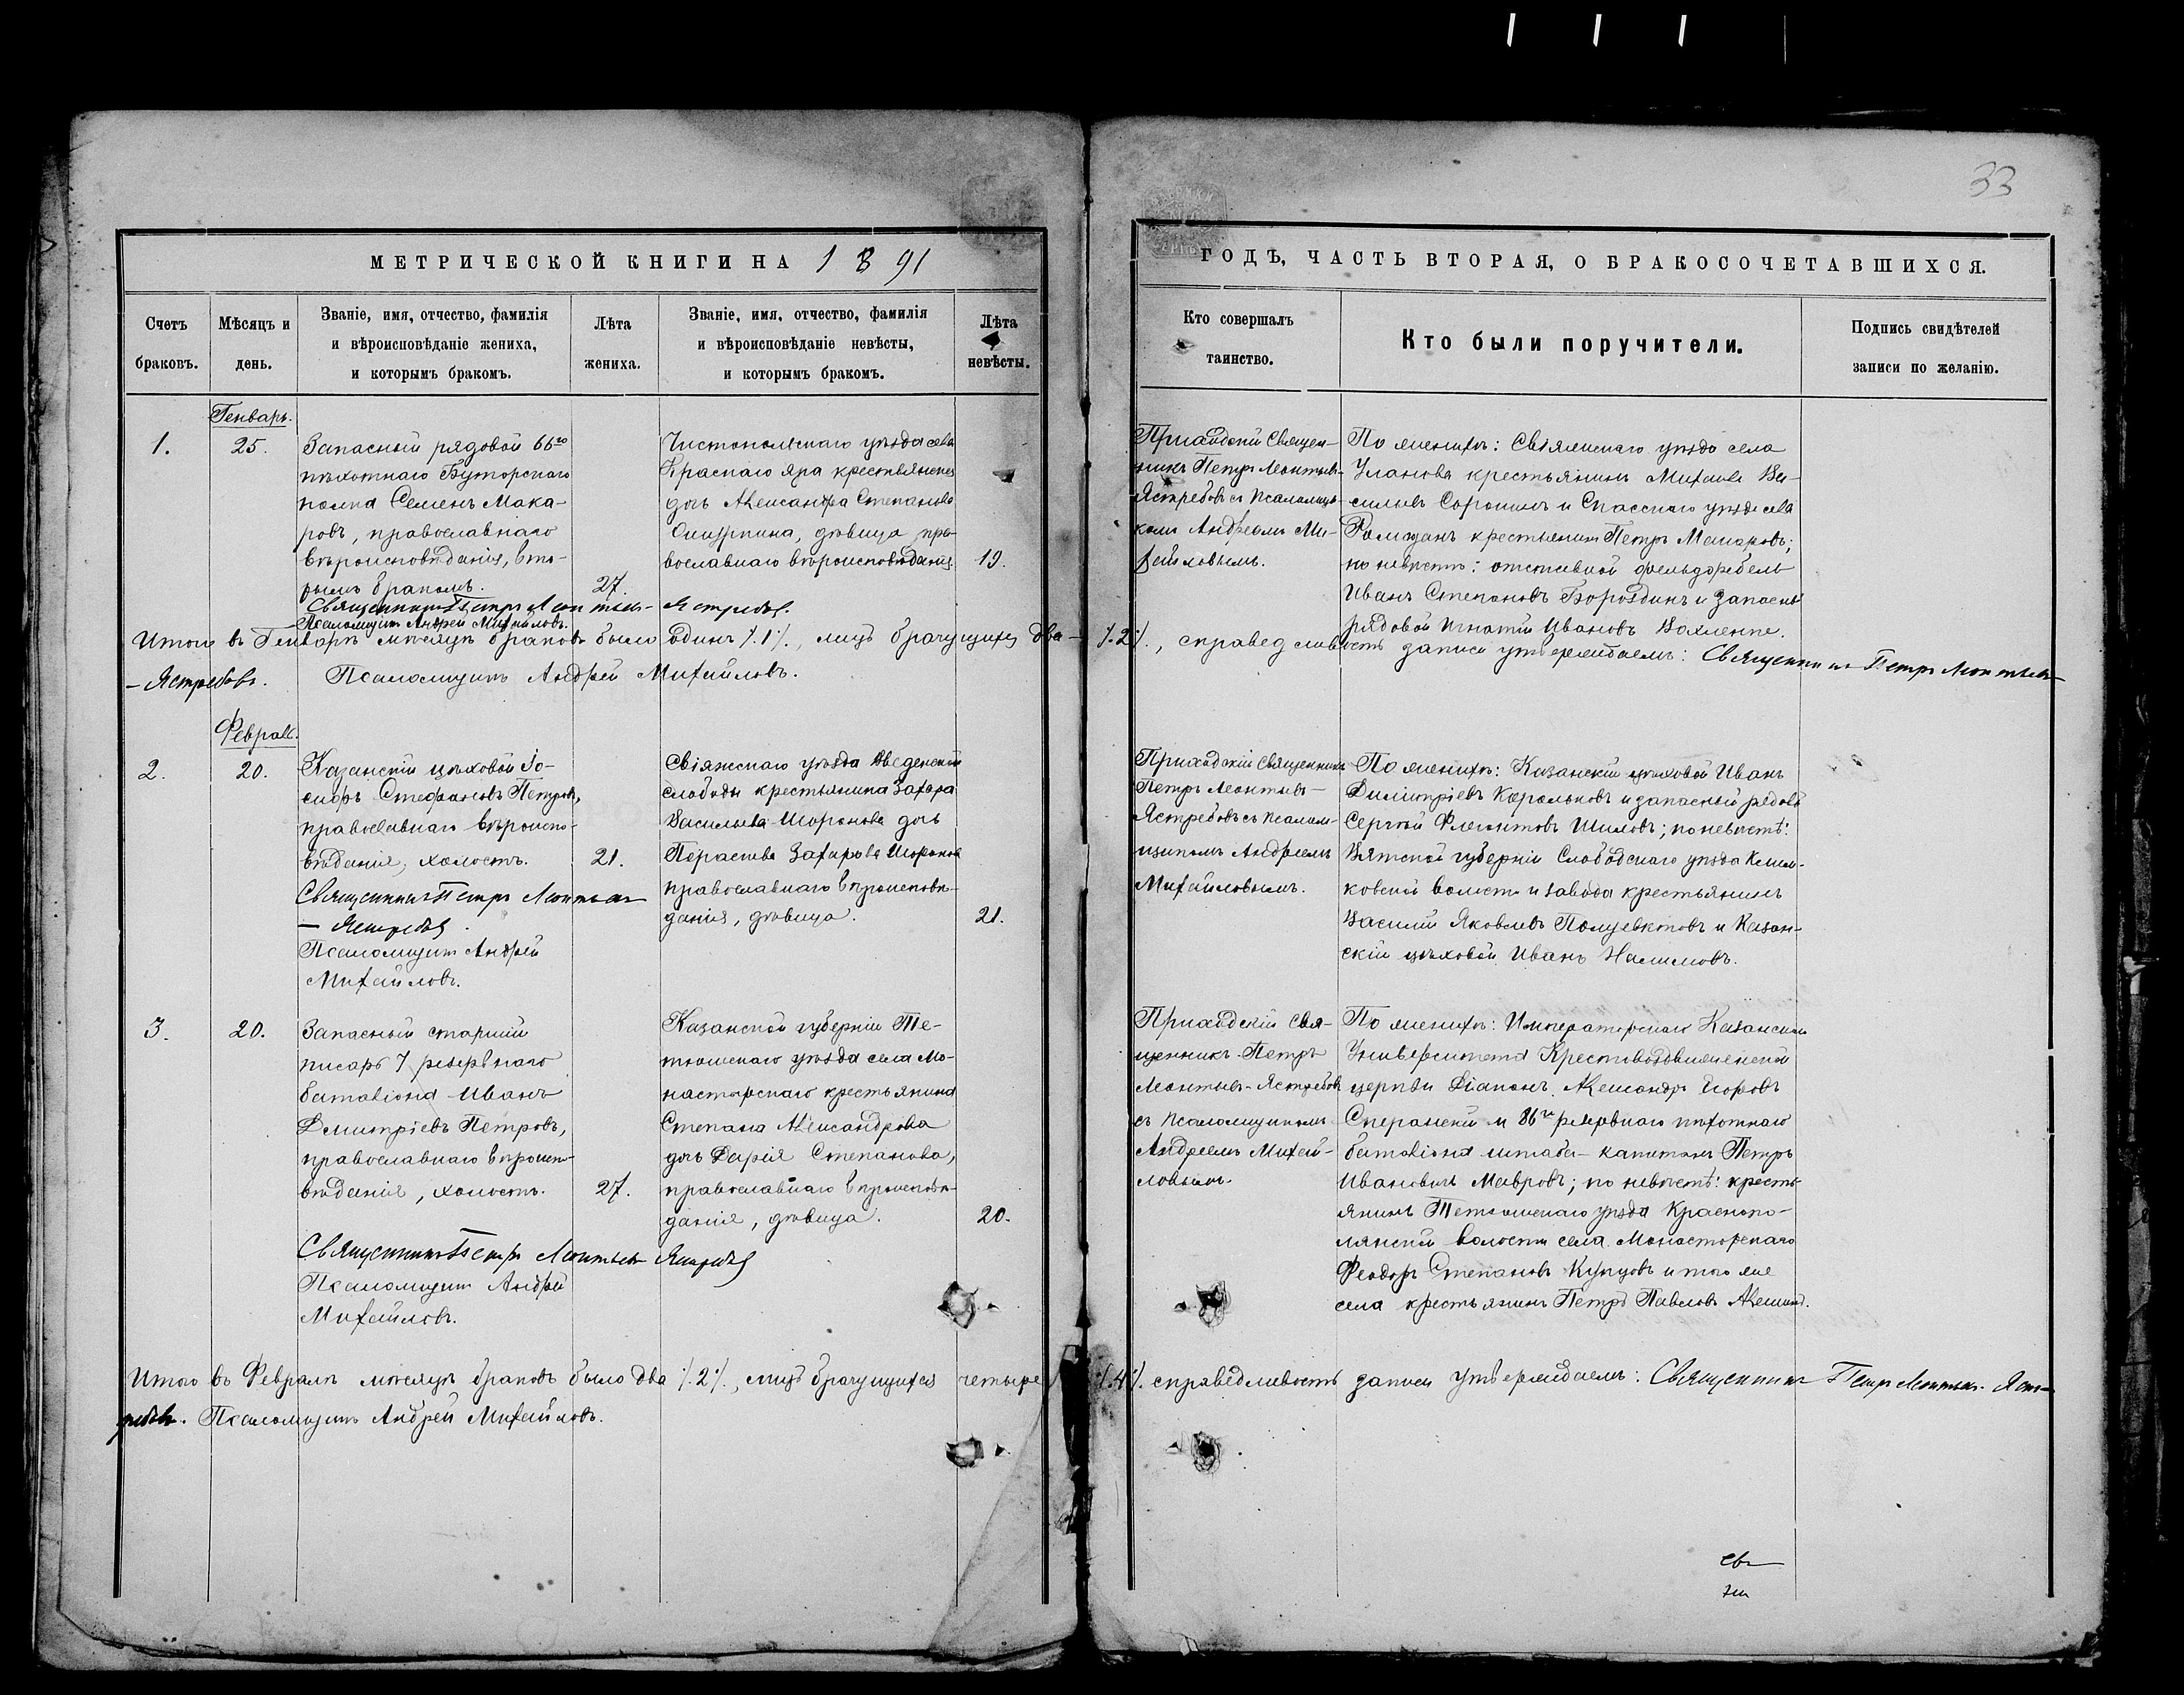 33
МЕТРИЧЕСКОЙ КНИГИ НА 1891
ГОДЪ, ЧАСТЬ ВТОРАЯ, О БРАКОСОЧЕТАВШИХСЯ.
Счетъ
браковъ.
Мѣсяцъ и
день.
Званіе, имя, отчество, фамилія
и вѣроисповѣданіе жениха,
и которымъ бракомъ.
Лѣта
жениха.
Званіе, имя, отчество, фамилія
и вѣроисповѣданіе невѣсты,
и которымъ бракомъ.
Лѣта
невѣсты.
Кто совершалъ
таинство.
Кто были поручители.
Подпись свидѣтелей
записи по желанію.
Генварь.
1.
25.
Запасный рядовой 66го
пѣхотнаго Бутырскаго
полка Семенъ Мака-
ровъ, православнаго
вѣроисповѣданія, вто-
рымъ бракомъ.
27.
Чистопольскаго уѣзда села
Краснаго Яра крестьянская
дочь Александра Степанова
дѣвица, пра-
вославнаго вѣроисповѣданія
19.
Приходскій Священ-
никъ Петръ Леонтьев-
Ястребовъ съ Псаломщи-
комъ Андреемъ Ми-
хайловымъ.
По женихѣ: Свіяжскаго уѣзда села
Уланова крестьянинъ Михаилъ Ва-
сильевъ Сорокинъ и Спасскаго уѣзда села
крестьянинъ Петръ Макаровъ;
по невѣстѣ: отставной фельдфебель
Иванъ Степановъ Бороздинъ и запасный
рядовой Игнатій Ивановъ
Священникъ Петръ Леонтьев- Ястребовъ.
Псаломщикъ Андрей Михайловъ.
Итого въ Генварѣ мѣсяцѣ браковъ было одинъ /.1./, лицъ брачущихся два - /.2./, справедливость записи утверждаемъ: Священникъ Петръ Леонтьев-
- Ястребовъ. Псаломщикъ Андрей Михайловъ.
Феврал.
2.
20.
Казанскій цѣховой Іо-
сифъ Стефановъ Петровъ,
православнаго вѣроиспо-
вѣданія, холостъ.
21.
Священникъ Петръ Леонтьев-
- Ястребовъ.
Псаломщикъ Андрей
Михайловъ.
Свіяжскаго уѣзда Введенской
слободы крестьянина Захара
Васильева Широнова дочь
Параскева Захарова Широнова
православнаго вѣроисповѣ-
данія, дѣвица.
21.
Приходскій Священникъ
Петръ Леонтьев-
Ястребовъ съ псалом-
щикомъ Андреемъ
Михайловымъ.
По женихѣ: Казанскій цѣховой Иванъ
Димитріевъ Корольковъ и запасный рядовой
Сергѣй Шиловъ; по невѣстѣ:
Вятской губерніи Слободскаго уѣзда
ковской волости и завода крестьянинъ
Василій Яковлевъ Полуевктовъ и Казан-
скій цѣховой Иванъ Налимовъ.
3.
20.
Запасный старшій
писарь 7 резервнаго
баталіона Иванъ
Дмитріевъ Петровъ,
православнаго вѣроиспо-
вѣданія, холостъ.
27.
Священникъ Петръ Леонтьев- Ястребовъ
Псаломщикъ Андрей
Михайловъ.
Казанской губерніи Те-
тюшскаго уѣзда села Мо-
настырскаго крестьянина
Степана Александрова
дочь Дарія Степанова,
православнаго вѣроисповѣ-
данія, дѣвица.
20.
Приходскій Свя-
щенникъ Петръ
Леонтьев- Ястребовъ
съ псаломщикомъ
Андреемъ Михай-
ловымъ.
По женихѣ: Императорскаго Казанскаго
Университета Крестовоздвиженской
церкви Діаконъ Александръ Егоровъ
Сперанскій и 86го резервнаго пѣхотнаго
баталіона штабс- капитанъ Петръ
Ивановичъ Мавровъ; по невѣстѣ: кресть-
янинъ Тетюшскаго уѣзда Краснопо-
лянской волости села Монастырскаго
Феодоръ Степановъ Купцовъ и того же
села крестьянинъ Петръ Павловъ Александ.
Итого въ Февралѣ мѣсяцѣ браковъ было два /.2./, лицъ брачущихся четыре /.4./. справедливость записи утверждаемъ: Священникъ Петръ Леонтьев- Яст-
ребовъ. Псаломщикъ Андрей Михайловъ.